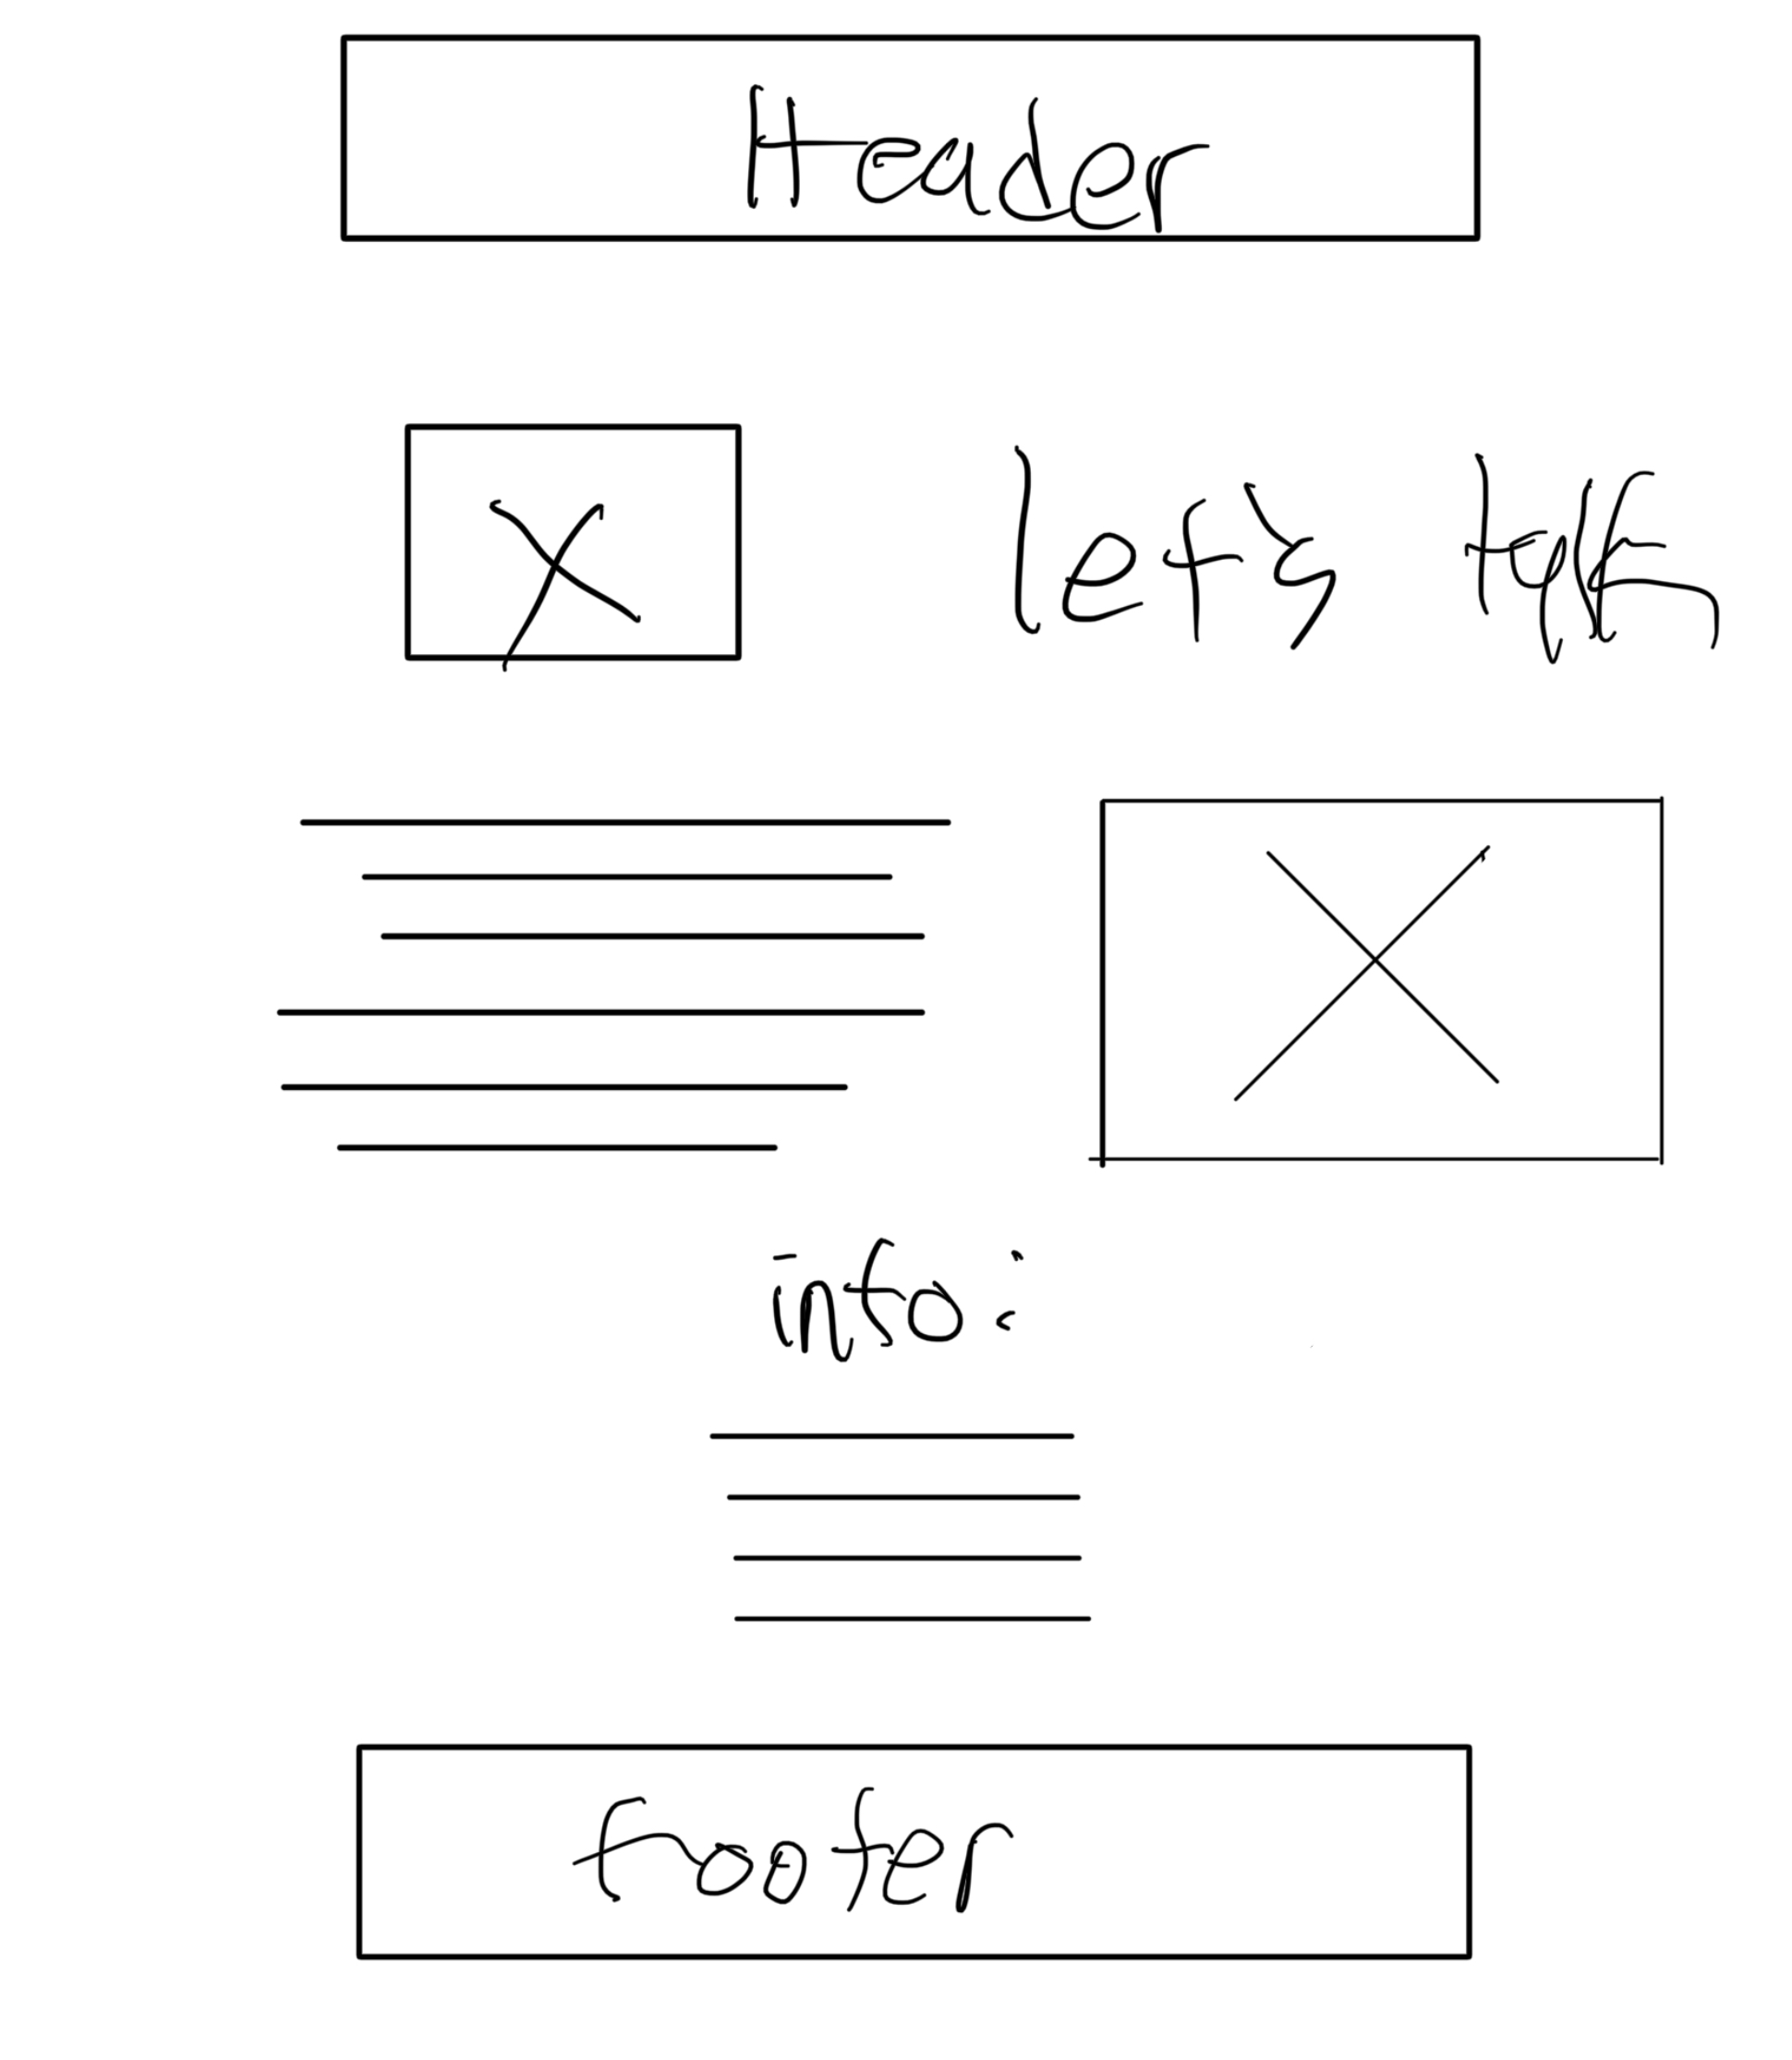 Header
let's talk
info:
footer